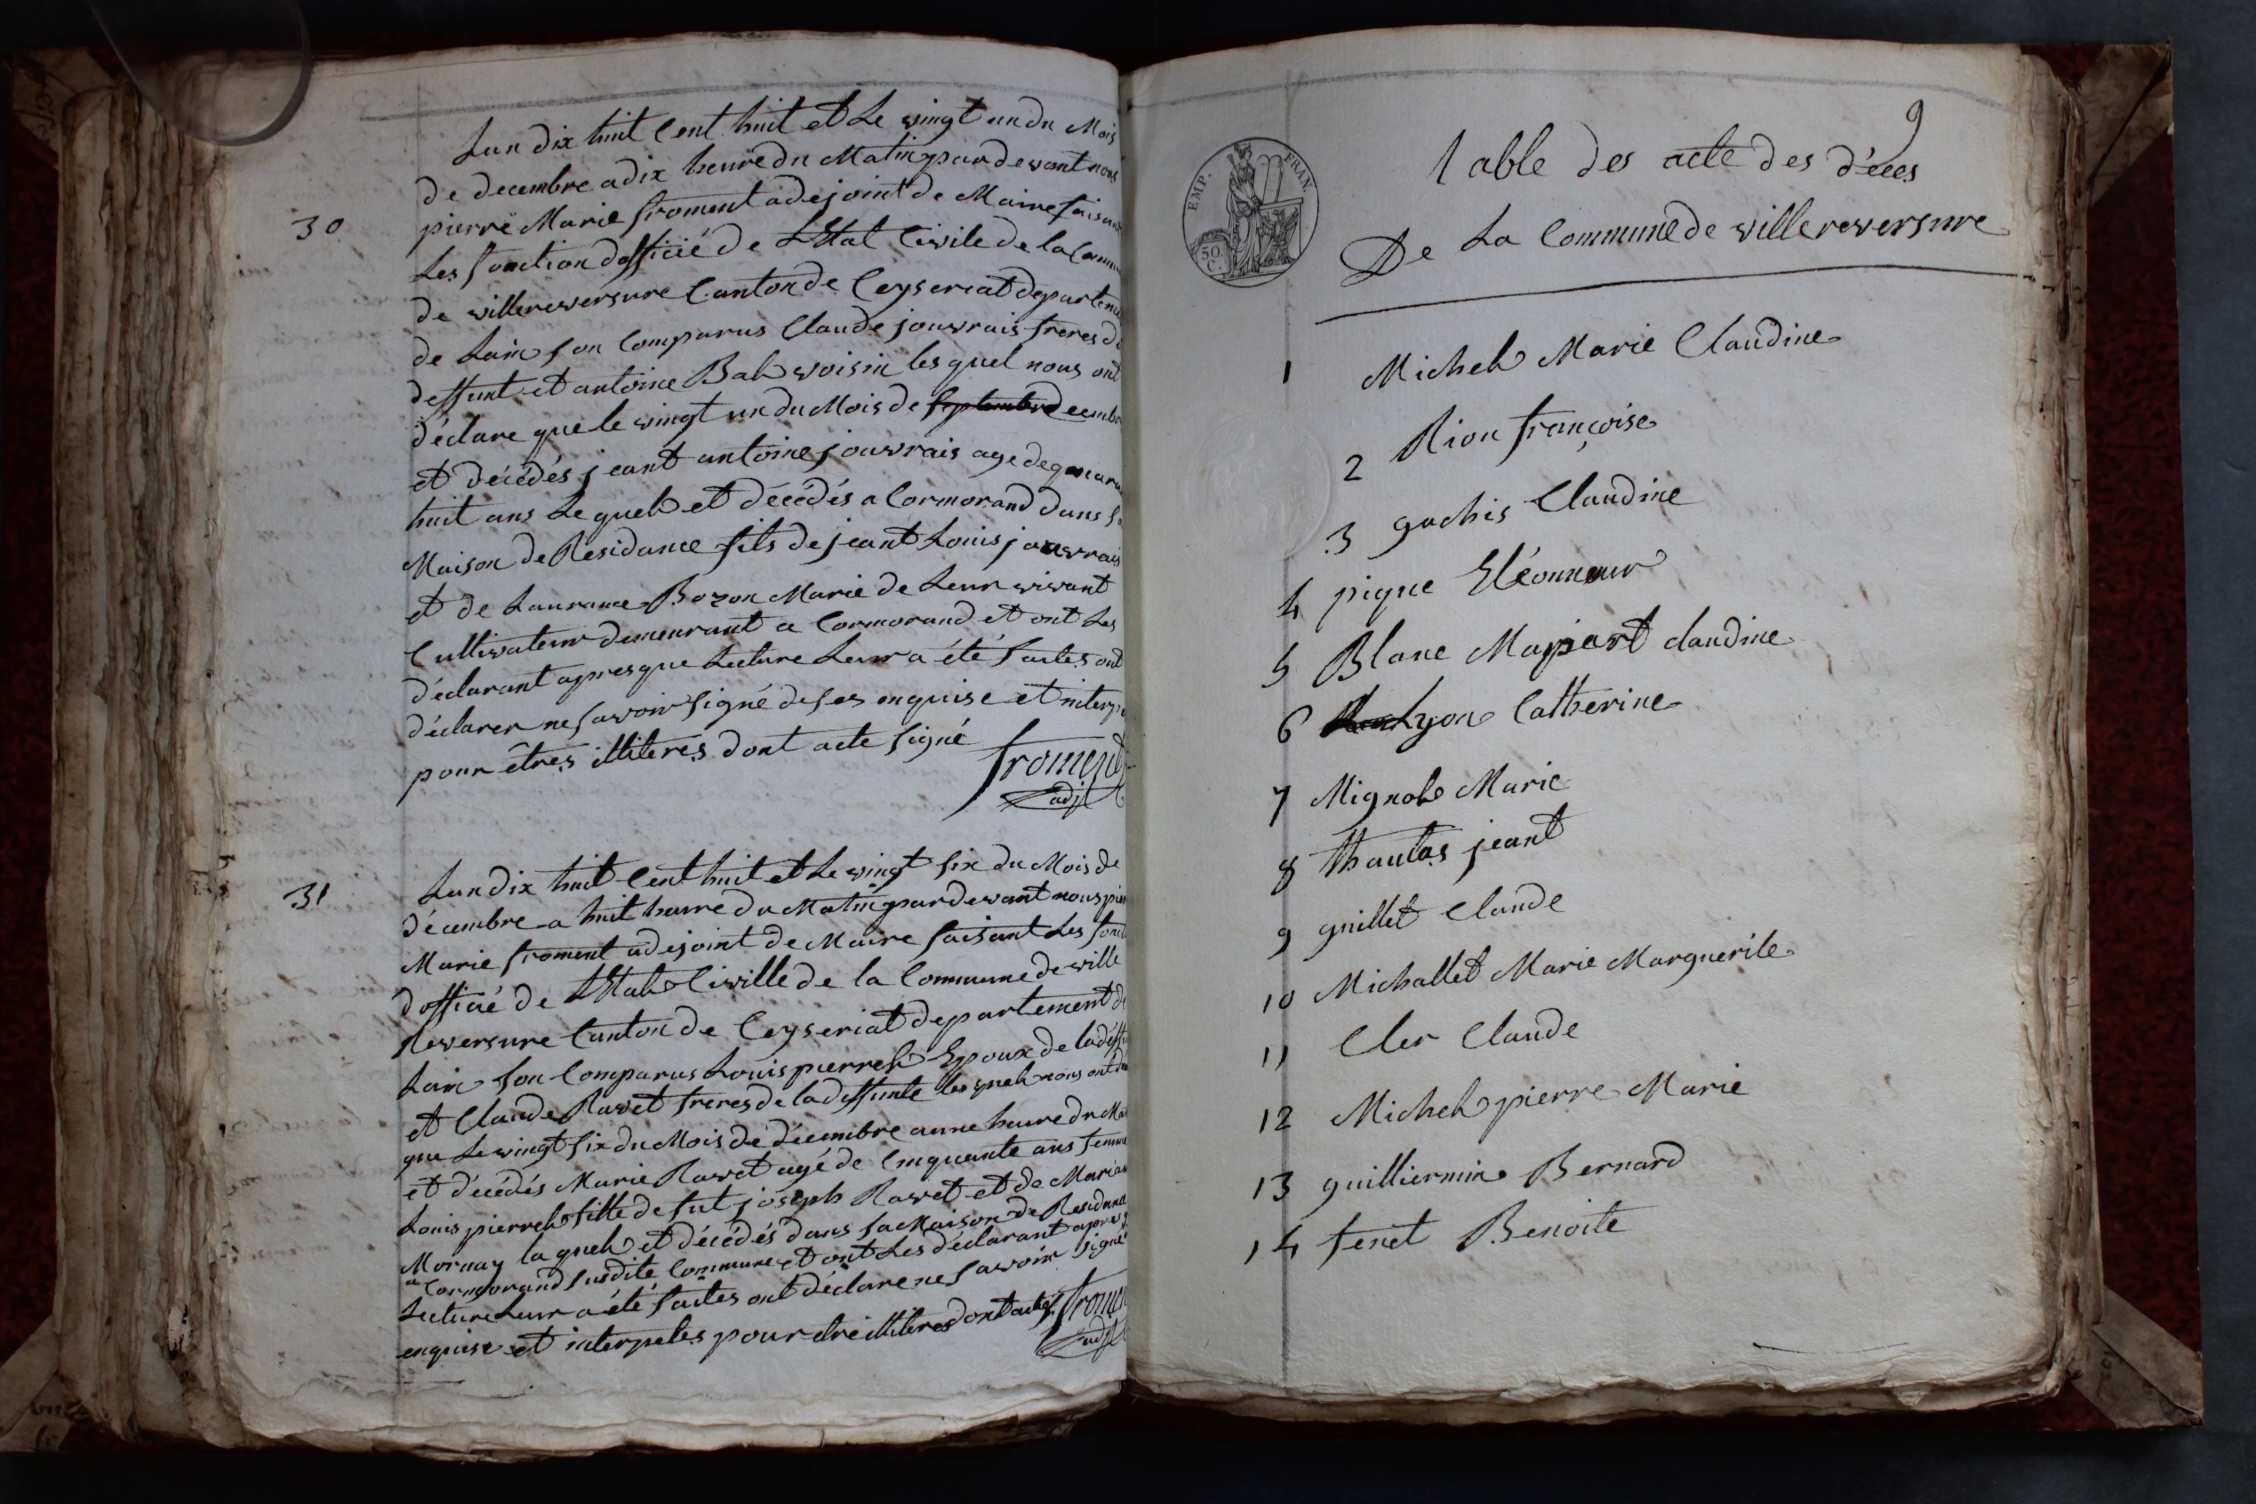 30
Lan dix huit Cent huit et Le vingt un du Mois
de decembre a dix heure du Matin pardevant nous
pierre Marie froment adejoint de Maire faisant
Les fonction dofficié de LEtat Civile de la Commu
de villereversure Canton de Ceyseriat departeme
de Lain son Comparus Claude jouvrais freres de
deffunt et antoine Bal voisin les quel nous ont
déclare que le vingt un du Mois de septembre Decembre
et décédés jeant antoine jouvrais age de quaran
huit ans Le quel et décédés a Cormorand dans Sa
Maison de Residance fils de jeant Louis jouvrais
et de Laurance Bozon Marie de Leur vivant
Cultivateur demeurant a Cormorand et ont Les
déclarant apres que Lecture Leur a été faites ont
déclarer ne savoir signé de ses enquise et interpe
pour êtres illiteres dont acte signé
froment
adjt
31
Lan dix huit Cent huit et Le vingt six du Mois de
décembre a huit heure du Matin pardevant nous pier
Marie froment adejoint de Maire faisant Les foncti
dofficié de LEtat Civille de la Commune de ville
Reversure Canton de Ceyseriat departement de
Lain son Comparus Louis pierrel Epoux de la deffu
et Claude Ravet freres de la deffunte les quel nous ont
que Le vingt six du Mois de décembre a une heure du Mat
et décédés Marie Ravet agé de Cinquante ans femme
Louis pierrel fille de fut joseph Ravet et de Maria
Mornay la quel et décédés dans sa Maison de Residance
a Cormorand susdite Commune et ont Les déclarant apres
Lecture Leur a été faites ont déclare ne savoir signé
enquise et interpeles pour etre illiteres dont acte
froment
adjt
9
Table des acte des déces
De La Commune de villereversure
EMP. FRAN.
50 C.
1 Michel Marie Claudine
2 Rion françoise
3 gachis Claudine
4 pigne Eléonneur
5 Blanc Mapart claudine
6 Lyon Catherine
7 Mignot Marie
8 thaulas jeant
9 guillet Claude
10 Michallet Marie Marguerite
11 Cler Claude
12 Michel pierre Marie
13 guilliermin Bernard
14 fenet Benoite